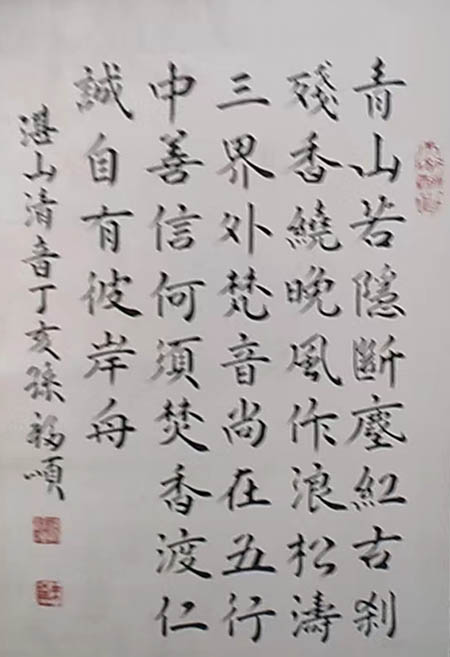 青山若隱斷塵紅古刹
殘香繞晚風作浪松濤
三界外梵音尚在五行
中善信何須焚香渡仁
誠自有彼岸舟
湛山清音丁亥孫福順